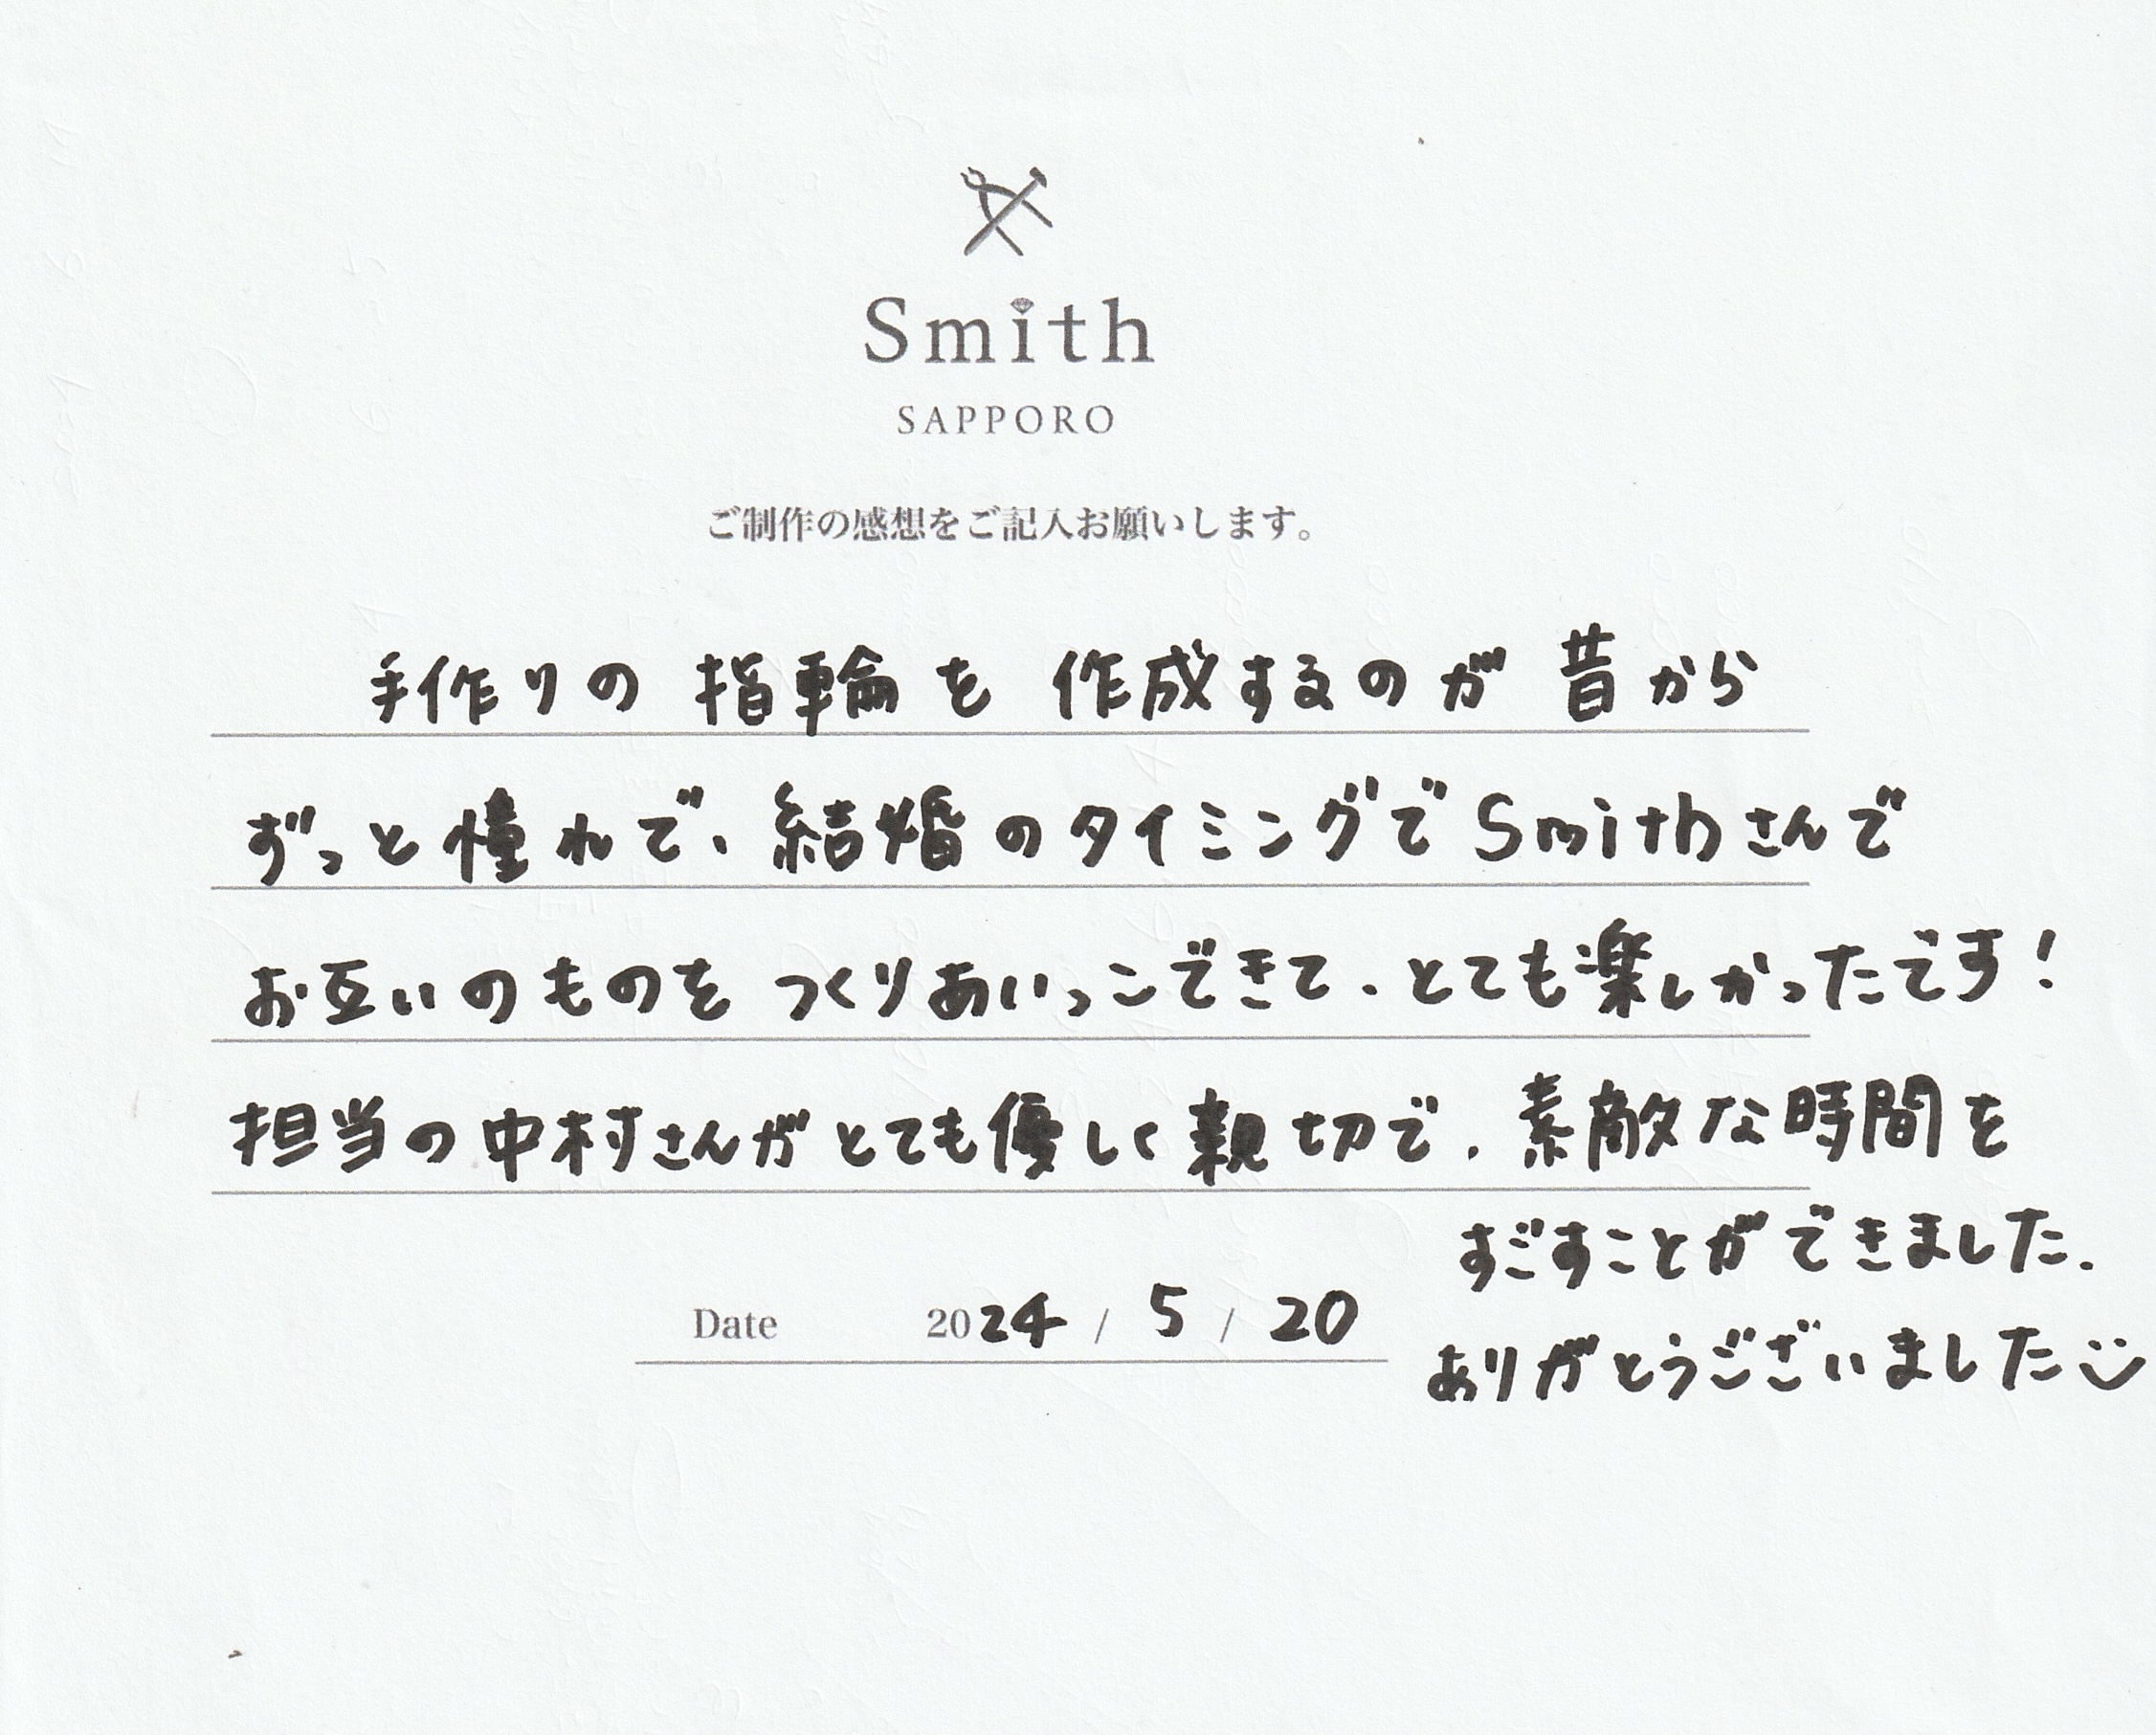 Smith
SAPPORO
ご制作の感想をご記入お願いします。
手作りの指輪を作成するのが昔から
ずっと憧れで、結婚のタイミングでSmithさんで
お互いのものをつくりあいっこできて、とても楽しかったです!
担当の中村さんがとても優しく親切で、素敵な時間を
すごすことができました.
ありがとうございました
Date 2024 / 5 / 20